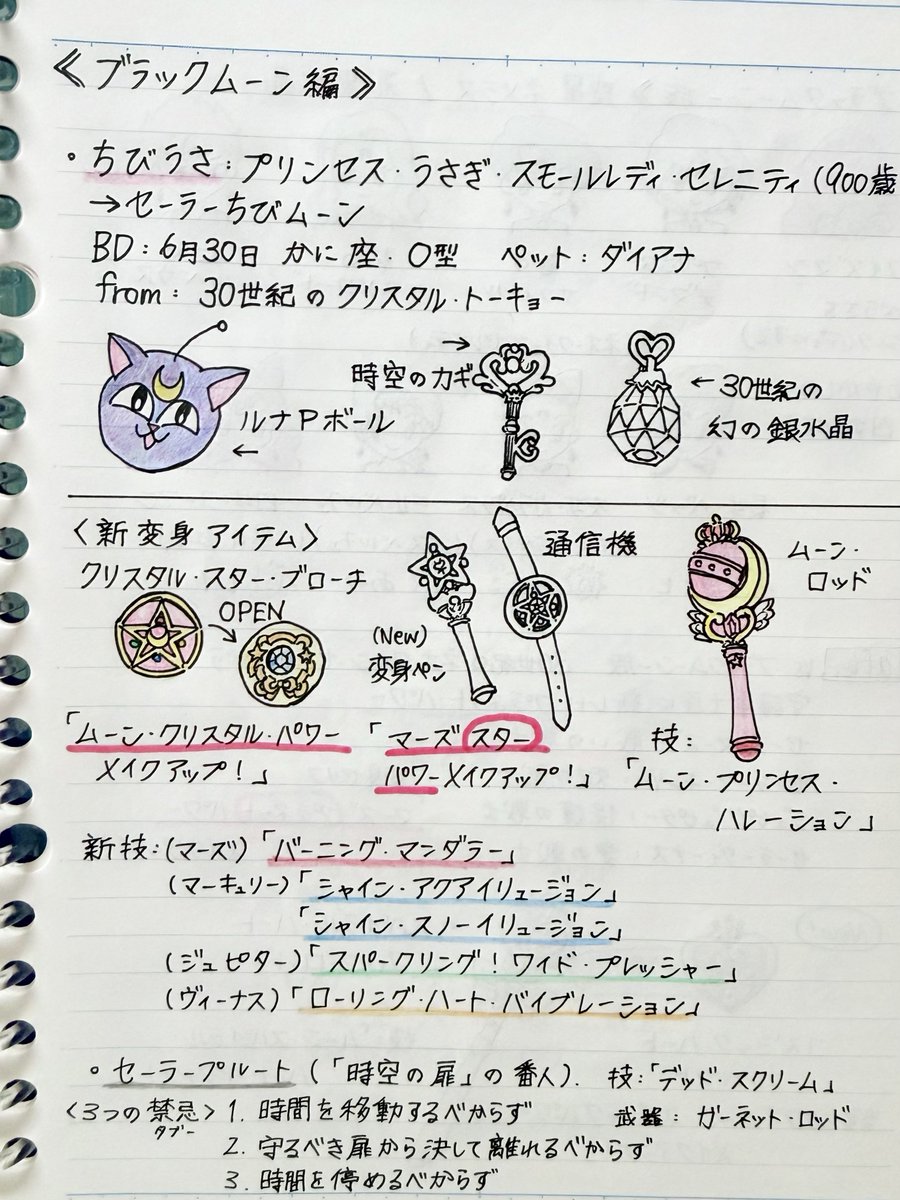 《ブラックムーン編》
・ちびうさ：プリンセス・うさぎ・スモールレディ・セレニティ（900歳
→セーラーちびムーン
BD：6月30日 かに座・O型 ペット：ダイアナ
from：30世紀のクリスタル・トーキョー
→
時空のカギ
ルナPボール
←
← 30世紀の
幻の銀水晶
〈新変身アイテム〉
クリスタル・スター・ブローチ
OPEN
(New)
変身ペン
通信機
ムーン・
ロッド
「ムーン・クリスタル・パワー
メイクアップ！」
「マーズスター
パワーメイクアップ！」
技：
「ムーン・プリンセス・
ハレーション」
新技：(マーズ)「バーニング・マンダラー」
(マーキュリー)「シャイン・アクアイリュージョン」
「シャイン・スノーイリュージョン」
(ジュピター)「スパークリング！ワイド・プレッシャー」
(ヴィーナス)「ローリング・ハート・バイブレーション」
。セーラープルート（「時空の扉」の番人). 技：「デッド・スクリーム」
〈3つの禁忌〉1. 時間を移動するべからず 武器：ガーネット・ロッド
タブー
2. 守るべき扉から決して離れるべからず
3. 時間を停めるべからず